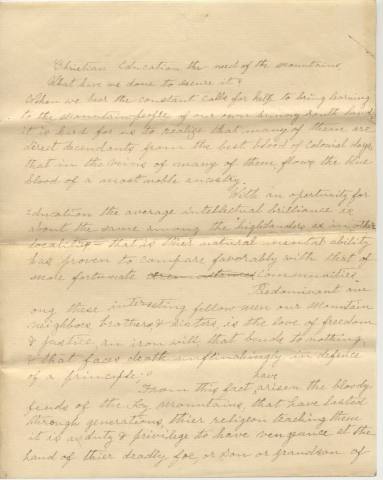 Christian Education the need of the mountains
What have we done to secure it?
When we hear the constant calls for help to bring learning
to the mountain people of our own sunny South land,
it is hard for us to realize that many of them are
direct decendants from the best blood of colonial days,
that in the veins of many of them flows the blue
blood of a most noble ancestry.
With an oportunity for
Education the average intellectual brilliance is
about the same among the highlanders as in other
localities - that is thier natural mental ability
has proven to compare favorably with that of
more fortunate communities
Predominant am
ong these interesting fellow men our mountain
neighbors, brothers & sisters, is the love of freedom
& justice an iron will, that bends to nothing,
& that faces death unflinchingly in defence
of a principle;
have
From this fact, arisen the bloody
feuds of the Ky mountains, that have lasted
through generations, thier religion teaching them
it is a duty & privilege to have vengeance at the
hand of thier deadly foe, or son or grandson of